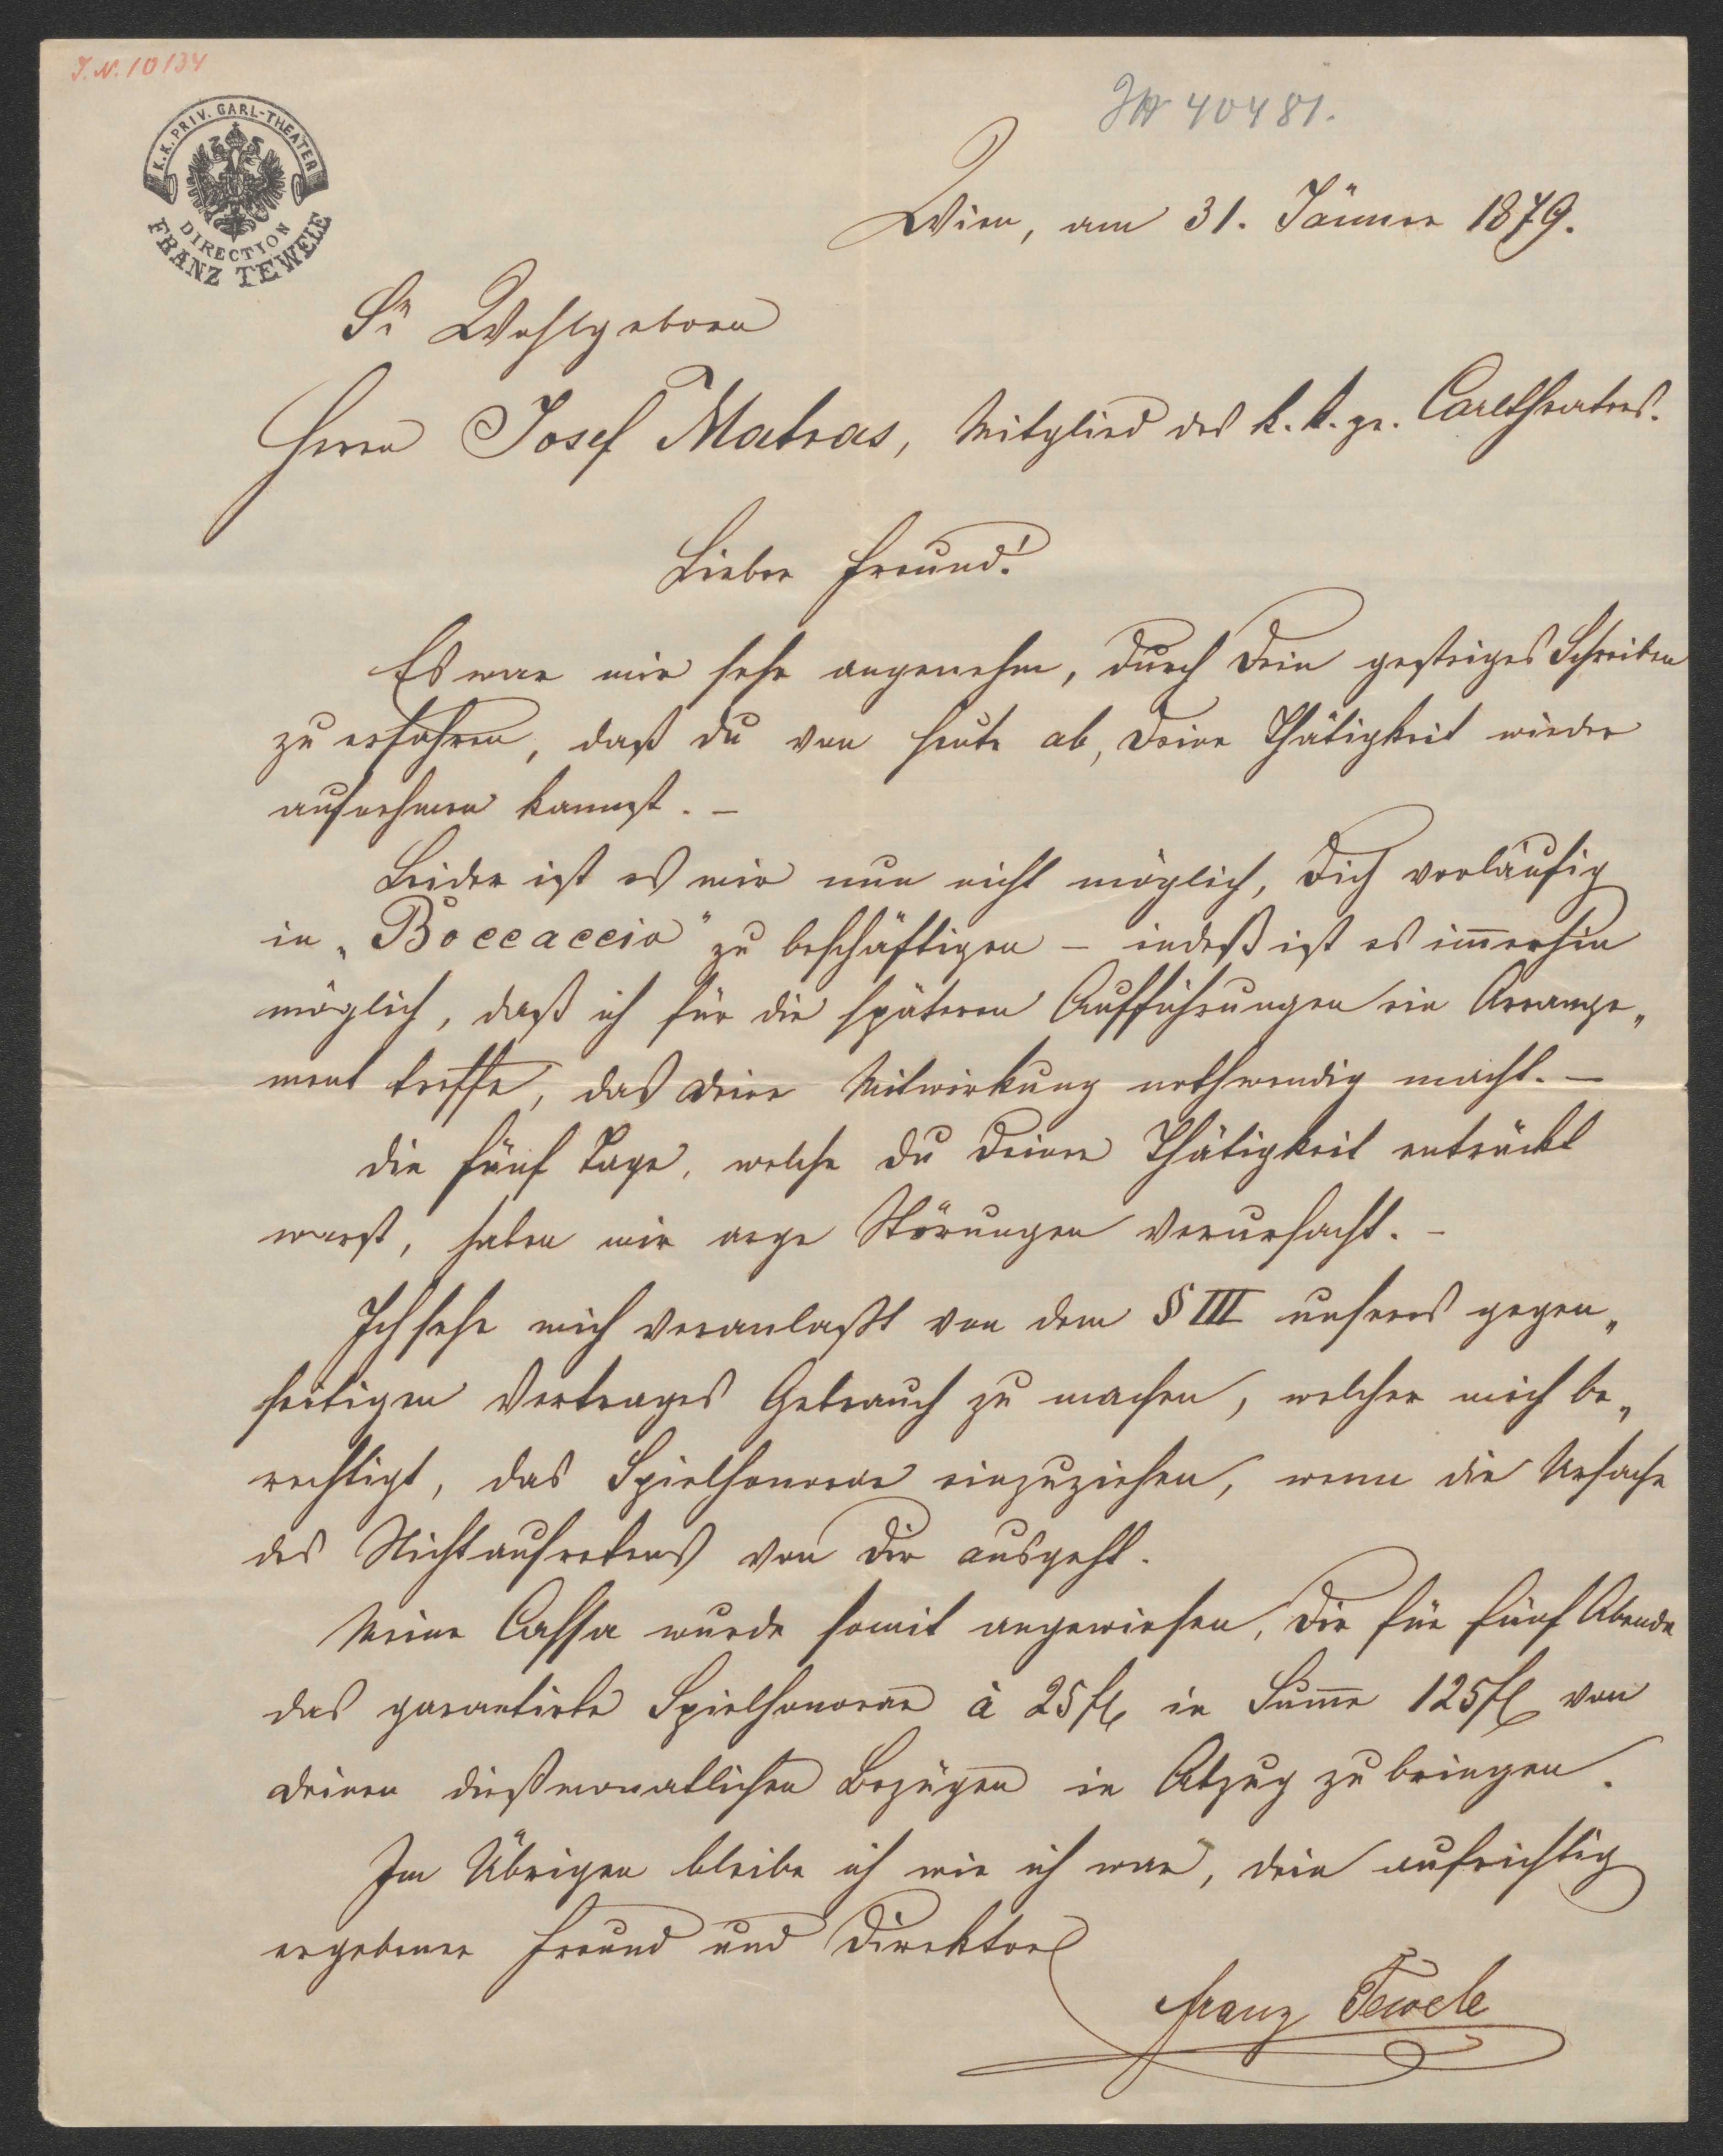 I. N. 10134
JN 40481.
K. K. PRIV. CARL-THEATER
DIRECTION
FRANZ TEWELE
Wien, am 31. Jänner 1879.
Sr Wohlgeboren
Herrn Josef Matras, Mitglied des k. k. pr. Carltheaters.
Lieber Freund!
Es war mir sehr angenehm, durch Dein gestriges Schreiben
zu erfahren, daß Du von heute ab, Deine Thätigkeit wieder
aufnehmen kannst. –
Leider ist es mir nun nicht möglich, Dich vorläufig
in „Boccaccio" zu beschäftigen – indeß ist es im̅erhin
möglich, daß ich für die späteren Aufführungen ein Arrange„
ment treffe, das Deine Mitwirkung nothwendig macht. –
Die fünf Tage, welche Du Deiner Thätigkeit entrückt
warst, haben mir arge Störungen verursacht. –
Ich sehe mich veranlaßt von dem § III unseres gegen„
seitigen Vertrages Gebrauch zu machen, welcher mich be„
rechtigt, das Spielhonorar einzuziehen, wenn die Ursache
des Nichtauftretens von Dir ausgeht.
Meine Cassa wurde somit angewiesen, Dir für fünf Abende
das garantirte Spielhonorar à 25 fl, in Sum̅e 125 fl von
Deinen dießmonatlichen Bezügen in Abzug zu bringen.
Im Übrigen bleibe ich wie ich war, Dein aufrichtig
ergebener Freund und Direktor
Franz Tewele